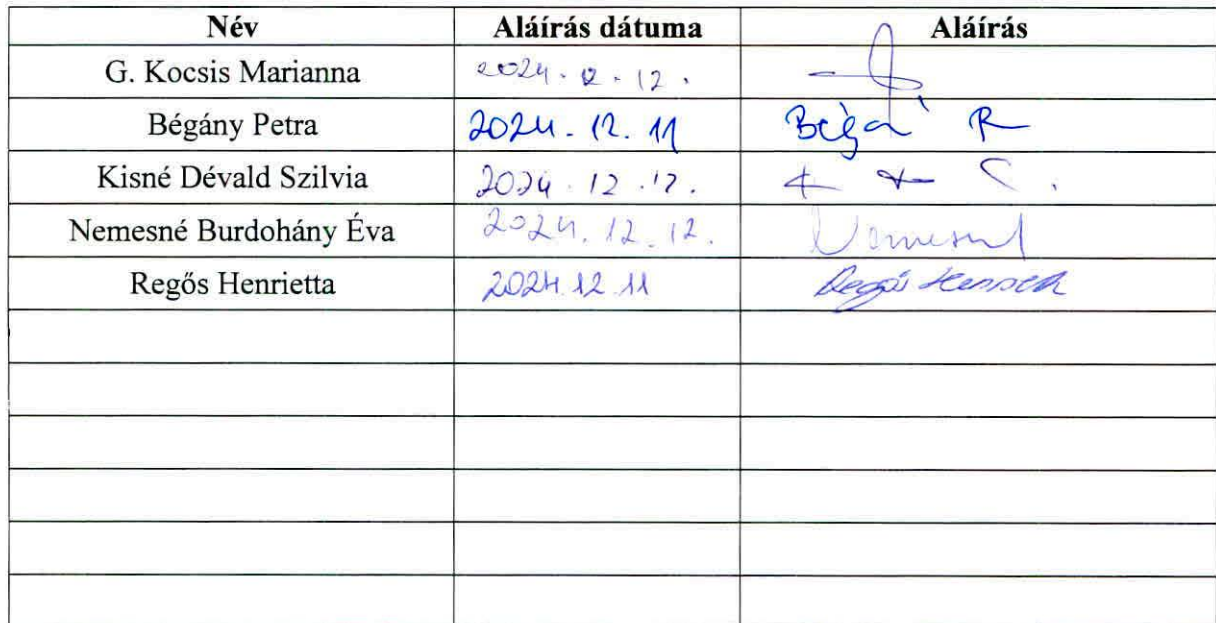 Név Aláírás dátuma Aláírás
G. Kocsis Marianna 2024. 12. 12.
Bégány Petra 2024. 12. 11
Kisné Dévald Szilvia 2024. 12. 12.
Nemesné Burdohány Éva 2024. 12. 12.
Regős Henrietta 2024. 12. 11 Regős